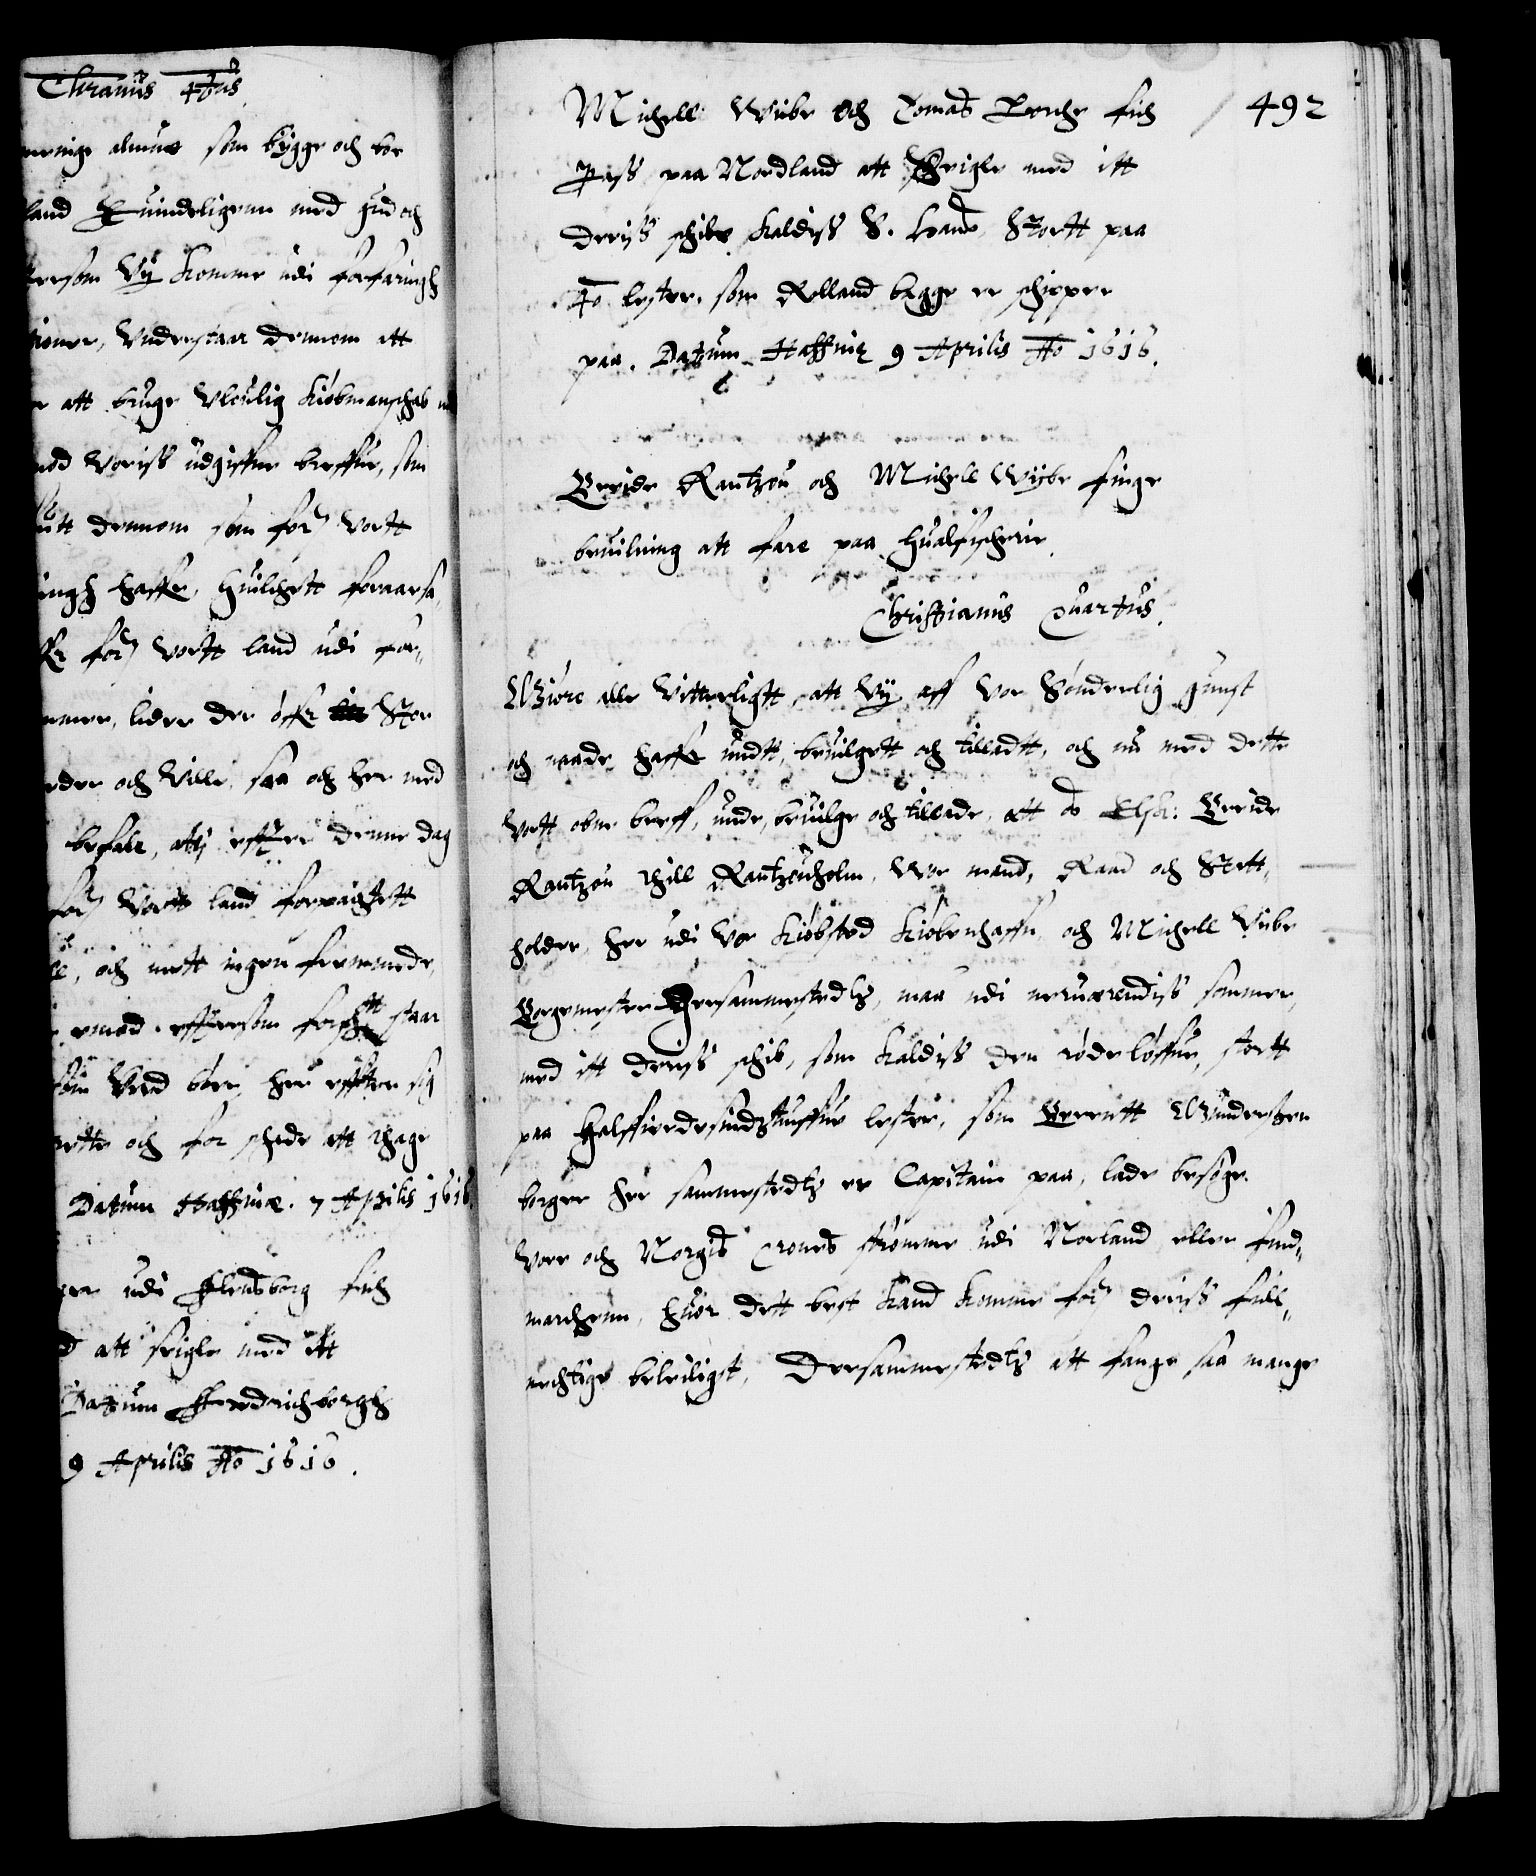 Chranus 4tus
menige almue som bygge och boe
land Kuindeligenn med gud och
ersom Vÿ komme udi forfaringh
Understaar dennom att
att bruge Uloulig Kiøbmanschab
mod Voriss udgiffne breffue, som
dennom som for:ne Vortt
ingh haffe, huilchett foraarsa,
for:ne Vortt land udi for,,
lider der øffr Stor
och Ville, saa och her med
befale, attj effter denne dag
for:ne Vortt land forpachtett
och nett ingen fremmede
emod, effttersom forsch:tt staar
Ved børe, her effter sig
rette och for schade att thage
Datum Haffniæ. 7 Aprilis 1616.
udi Flensborg fich
att seigle med itt
Datum Frederichborgh
9 Aprilis Ao 1616.
492
Michell Wibe och Tomas Lorche fich
Pass paa Nordland att Seigle med itt
deriss schib, kaldiss S. Hans, Stortt paa
40 lester, som Rolland bagge er schipper
paa. Datum Haffniæ 9 Aprilis Ao 1616.
Breide Rantzou och Michell Wijbe finge
beuilning att fare paa Hualfischerie.
Christianus Quartus.
Giøre alle Vitterligtt, att Vÿ aff Vor Sønderlig gunst
och naade haffe undtt, beuilgett och tilladtt, och nu med dette
Vortt obne breff, unde, beuilge och tillade, att os Elsk: Breide
Rantzou thill Rantzouholm, Vor mand, Raad och Statt,,
holder, her udi Vor Kiøbsted Kiøbenhaffn, och Michell Vibe
Borgemester Hersammestedtz, maa udi neruærendiss sommer,
med itt deriss schib, som kaldiss den røde løffue, stortt
paa halffierdesindztuffue lester, som Berentt Wunderszen
borger her sammestedtz er Capitain paa, lade besøge.
Vore och Norgis Crones strømme udi Norland eller find,,
marchenn, huor dett best kand komme for:ne deriss full,,
mechtige beleiligst, Dersammestedtz att fange saa mange